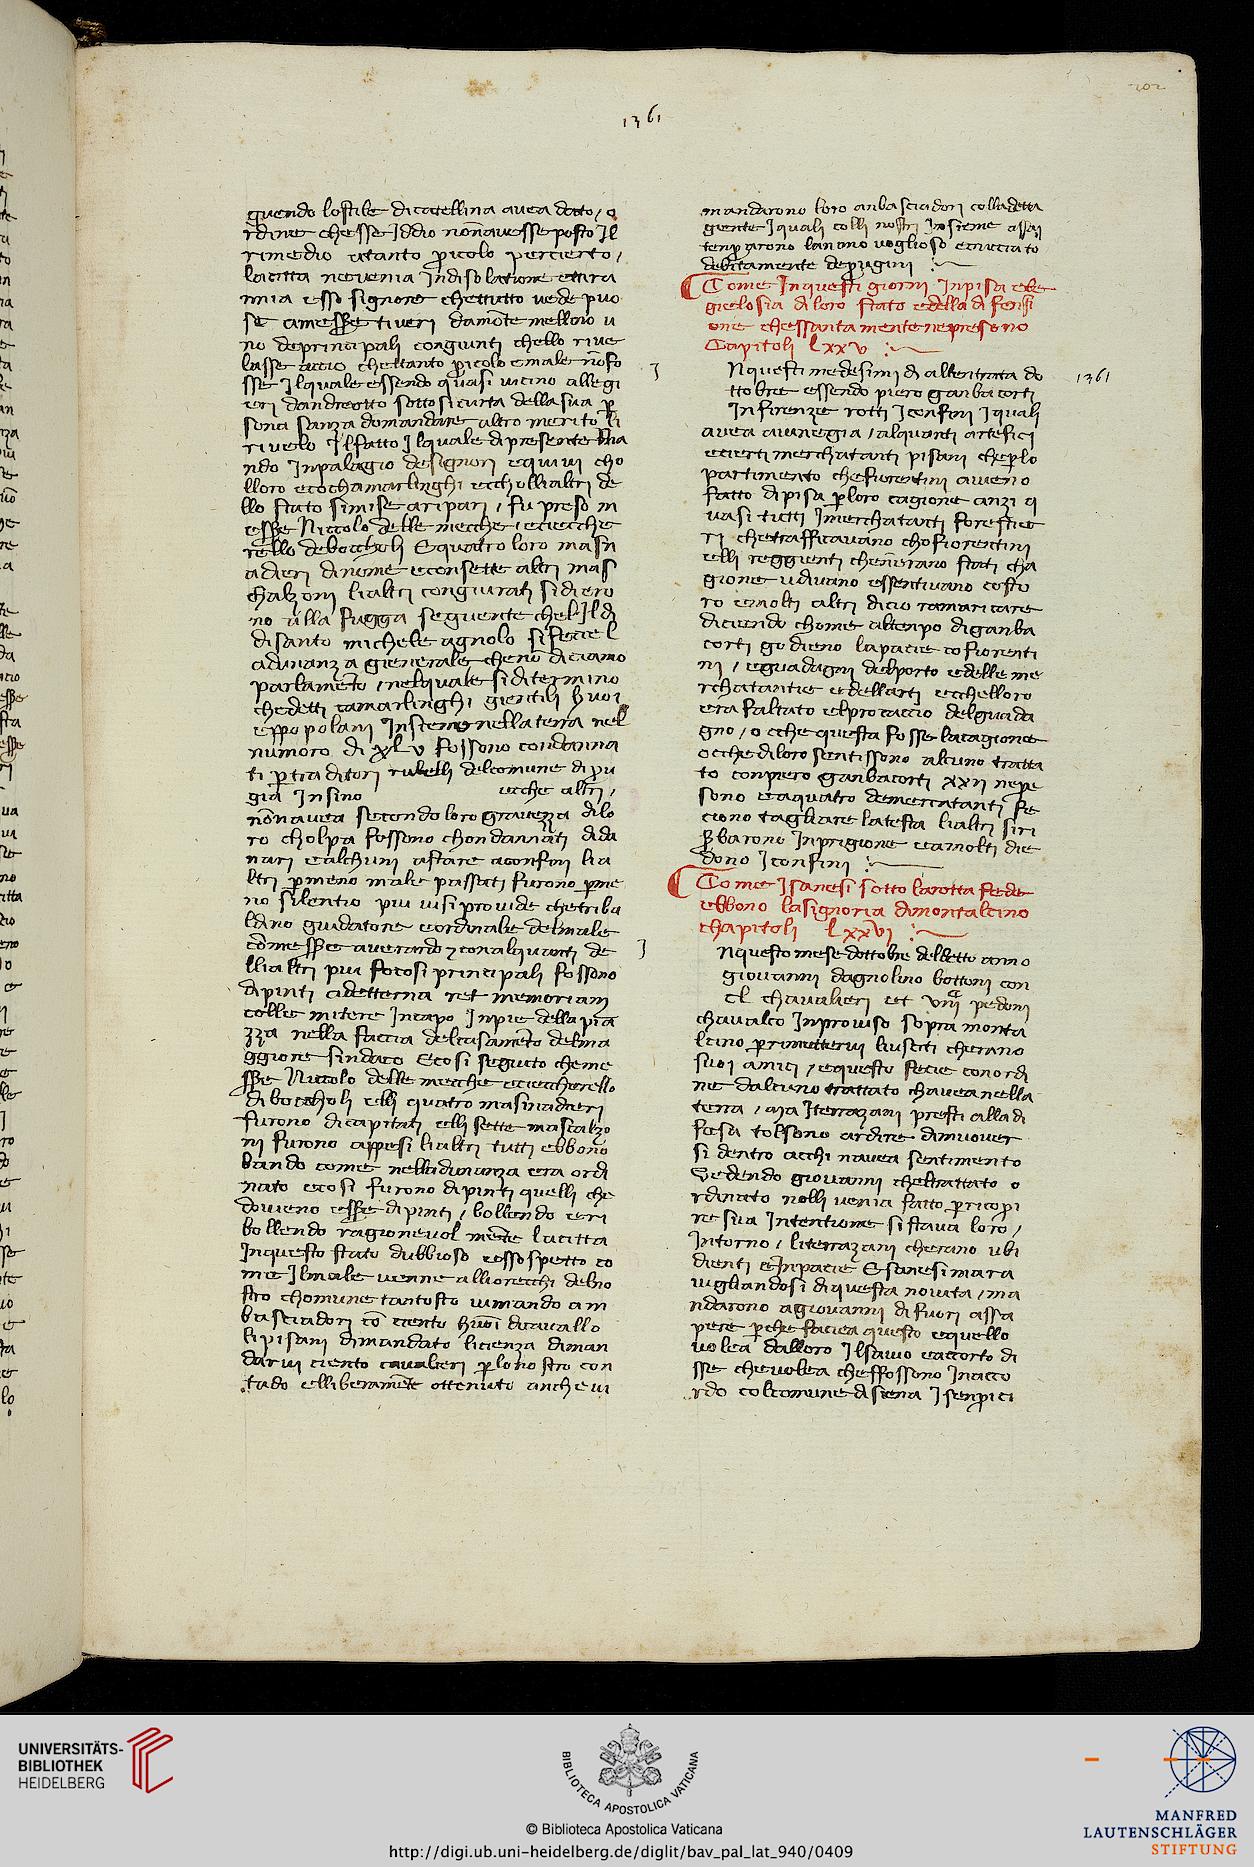 202
1361
guendo lostile dicatellina avea dato, o
rdine chesse Iddio nonnavesse posto Il
rimedio ettanto picolo percierto,
la citta nevenia Indisolatione ettira
nnia esso signore chettutto vede puo
no deprincipali congiunti chello rive
sse Ilquale essendo quasi vicino allegi
eri dandreotto sotto sicurta della sua
sona sanza domandare altro merito li
rivelo Ilfatto Ilquale dipresente ma
ndo Inpalagio designori equivi cho
lloro ecochamarlinghi ecchollialtri de
llo stato simise aripari, fu preso m
esse Niccolo delle mecche ececche
rello deboccholi Equatro loro masn
adieri dinome econsette altri mas
chalzoni lialtri congiurati sidiero
no alla fugga seguente chel Il di
disanto michele agnolo sifecie l
adunanza gienerale chenoi diciamo
parlamento, nelquale siditermino
chedetti camarlinghi gientili huoi
eppopolani Insieme nella terra nel
numoro di xlv fossono condanna
ti per traditori rubelli delcomune di pu
gia Insino ecche altri,
nonnavea secondo loro gravezza dilo
ro cholpa fossono chondannati dida
nari ealchuni astare aconfini lia
ltri permeno male passati furono pme
no silentio piu visi provide chetriba
ldino guidatore eordinale delmale
comesse averardo econalquanti de
llialtri piu focosi principali fossono
dipinti adetterna ret memoriam
colle mitere Incapo Inpie della pia
zza nella faccia delcasamento delma
ggiore sindaco Ecosi seguito cheme
sse Niccolo delle mecche ececcherello
di boccholi elli quatro masinadieri
furono dicapitati elli sette mascalzo
ni furono appesi lialtri tutti ebbono
bando come nelladunanza era ordi
nato ecosi furono dipinti quelli che
dovieno essere dipinti, bollendo eri
bollendo ragionevolmente lacitta
Inquesto stato dubbioso essospetto co
me Ilmale venne alliorecchi delno
stro chomune tantosto vimando am
basciadori con ciento huoi dicavallo
lipisani dimandato licienza diman
darvi ciento cavalieri per lonostro con
tado elliberamente ottenuto anche vi
mandarono loro anbasciadori colladetta
gente Iquali colli nostri Insieme assai
tenperarono lanimo voglioso ecrucciato
debitamente deperugini
Come Inquesti giorni Inpisa ebbe
gielosia diloro stato edella difensi
one chessantamente nepresono
Capitoli lxxv
Nquesti medesimi di allentrata do
ttobre essendo piero ganbacorti
Infirenze rotti Iconfini Iquali
avea avinegia, alquanti artefici
ecierti merchatanti pisani cheperlo
partimento chefiorentini avieno
fatto dipisa perloro cagione anzi q
uasi tutti Imerchatanti forestie
ri chetrafficavano chofiorentini
elli reggienti chennerano stati cha
gione udivano essentivano costo
ro emolti altri dicio ramaricare
diciendo chome altenpo diganba
corti godieno lapacie cofiorenti
ni, eguadagni delporto edelle me
rchatantie edellarti ecchelloro
era faltato elprocaccio delguada
gno, o cche questa fosse lacagione
occhediloro sentissono alcuno tratta
to conpiero ganbacorti xxii nepre
sono eaquatro demercatanti fe
ciono tagliare latesta lialtri siri
serbarono Inprigione eamolti die
dono Iconfini
1361
Come Isanesi sotto larotta fede
ebbono lasignoria dimontalcino
chapitoli lxxvi
Nquesto mese dottobre deldetto anno
giovanni dagnolino bottoni con
cl chavalieri et pedoni
chavalco Inproviso sopra monta
lcino perrimettervi liusciti cherano
suoi amici, equesto fecie conordi
ne dalcuno trattato chaveanella
terra, ma Iterrazani presti alladi
fesa tolsono ardire dimuover
si dentro acchi navea sentimento
Vedendo giovanni cheltrattato o
rdinato nolli venia fatto perricopi
re sua Intentione sistava loro,
Intorno, literrazani cherano ubi
dienti eInpacie Esanesi mara
vigliandosi diquesta novita, ma
ndarono agiovanni difuori assa
pere perche faciea questo equello
volea dalloro Ilsavio eaccorto di
sse chevolea cheffossono Inacco
rdo colcomune disiena Isenprici
UNIVERSITÄTS-
BIBLIOTHEK
HEIDELBERG
BIBLIOTECA APOSTOLICA VATICANA
© Biblioteca Apostolica Vaticana
http://digi.ub.uni-heidelberg.de/diglit/bav_pal_lat_940/0409
MANFRED
LAUTENSCHLÄGER
STIFTUNG